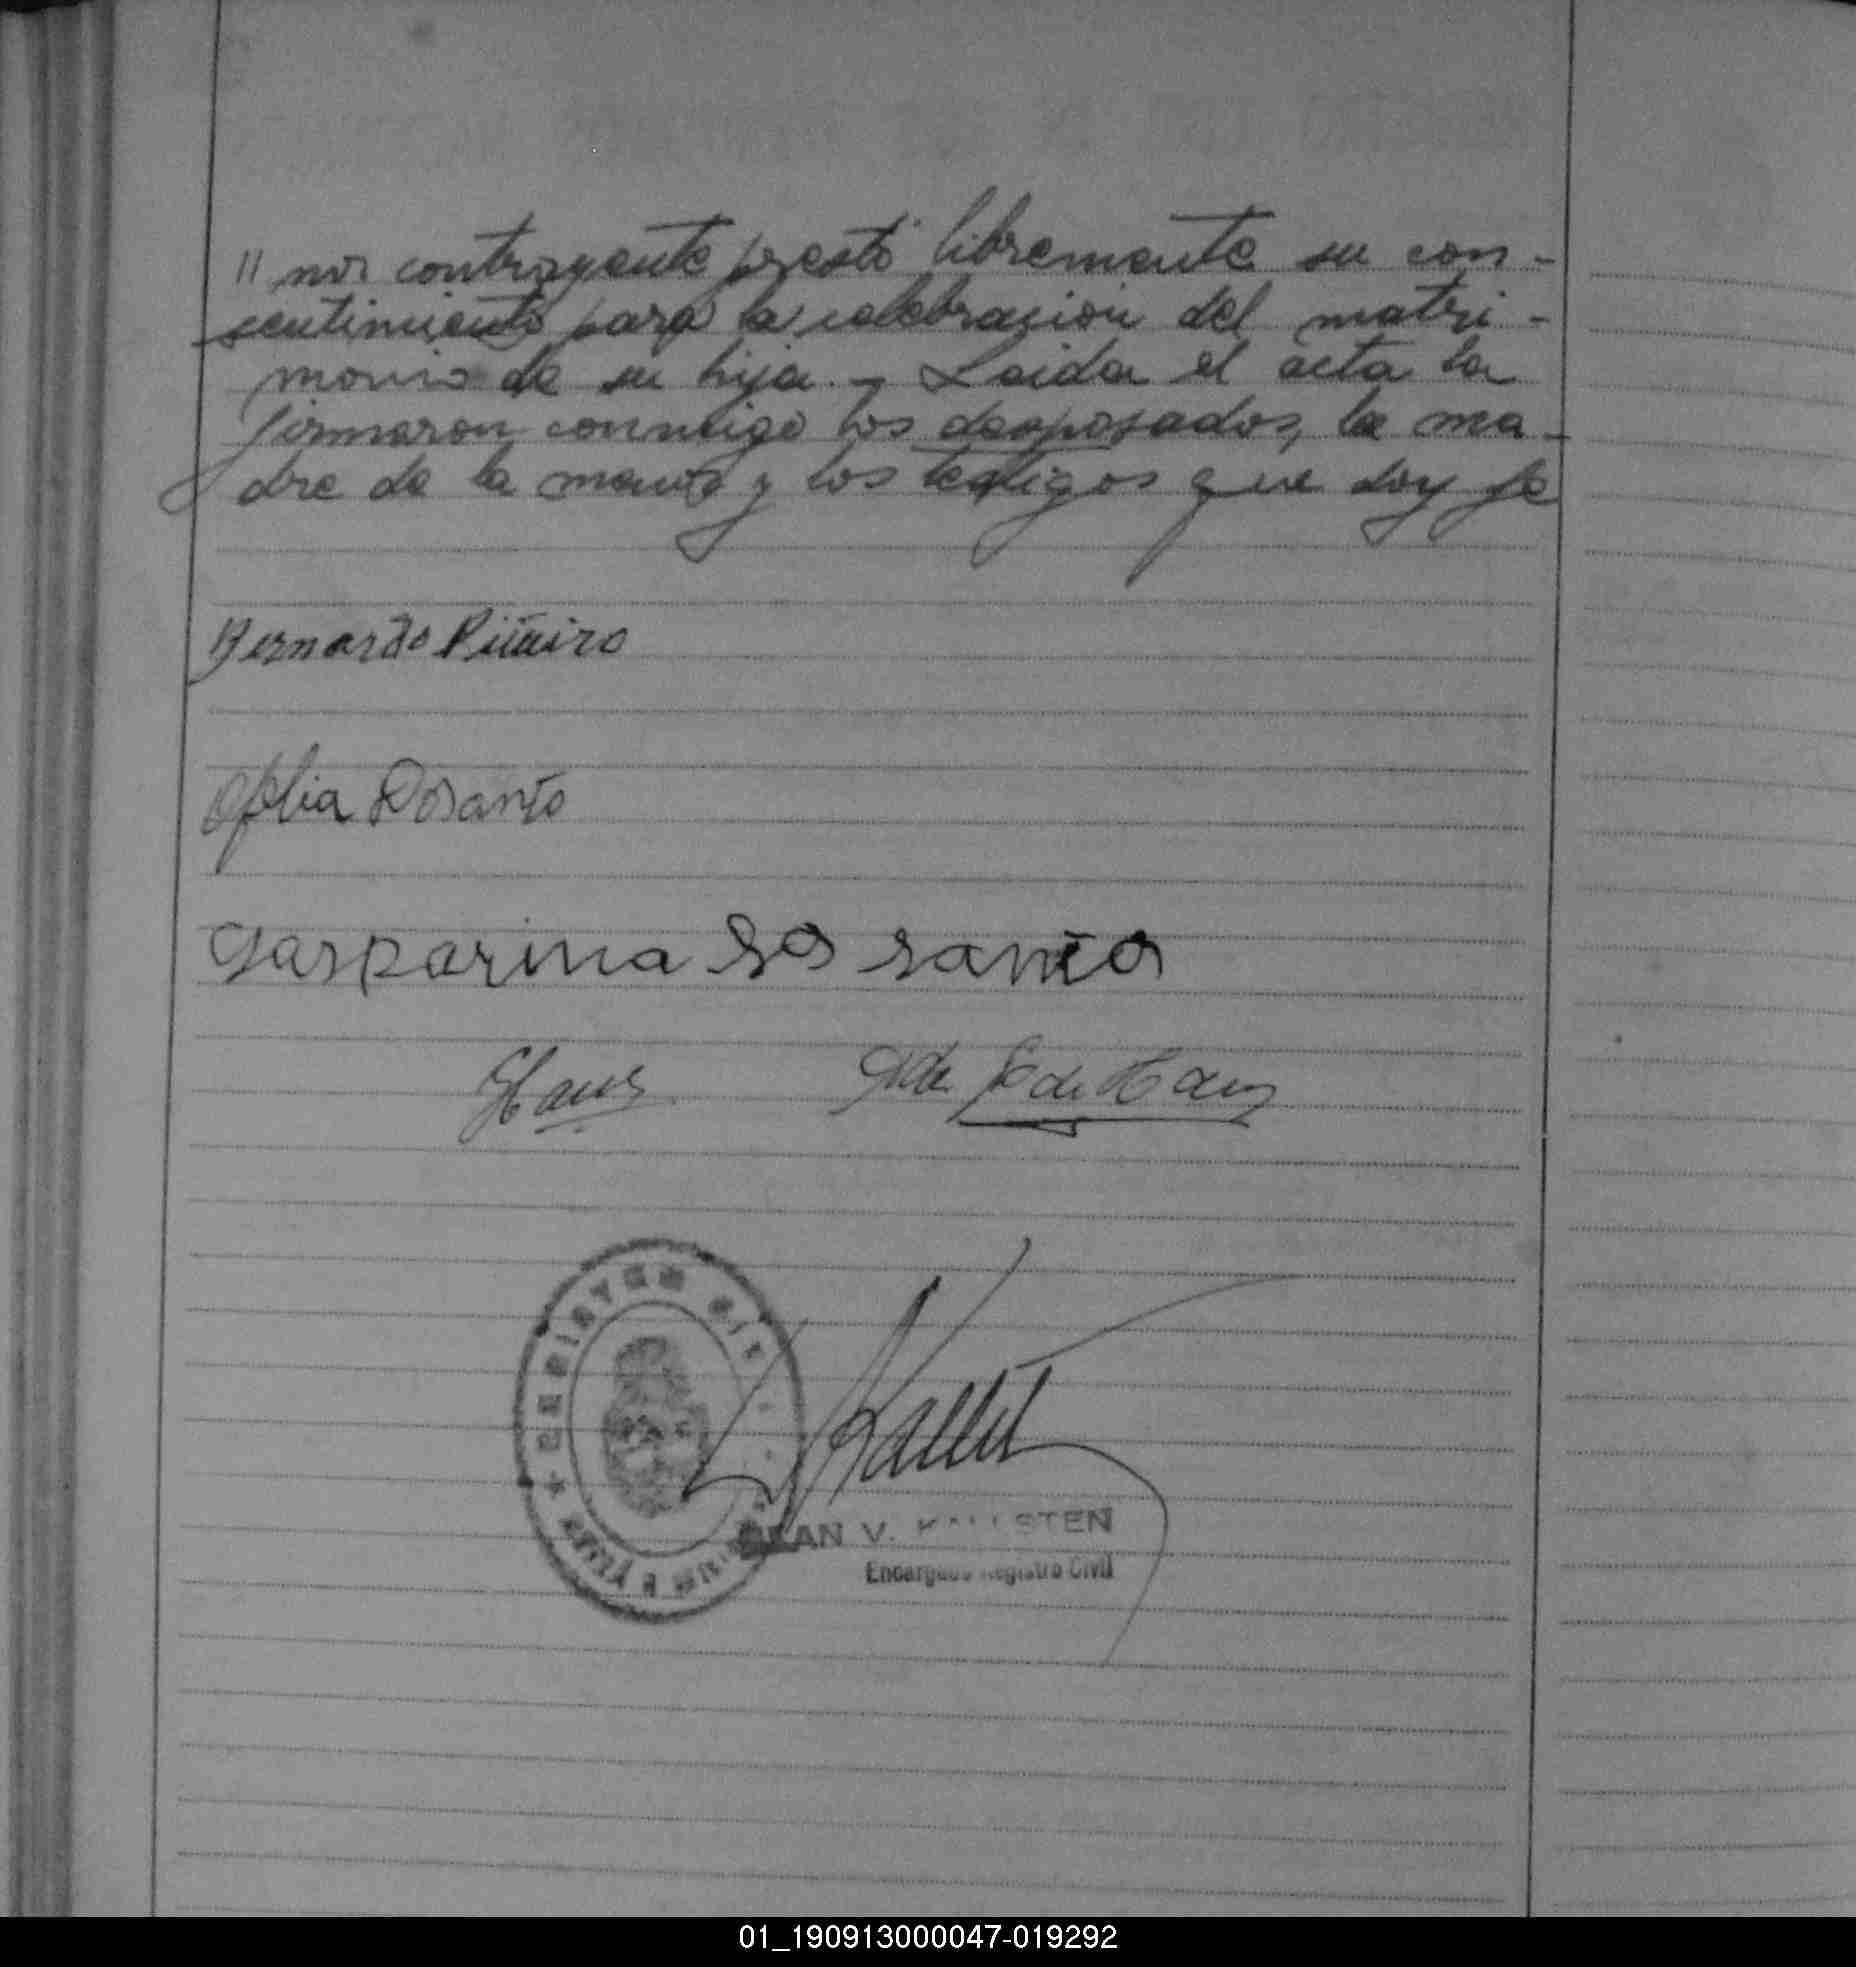 // nor contrayente prestó libremente su con-
sentimiento para la celebración del matri-
monio de su hija.- Leida el acta la
firmaron conmigo los desposados, la ma-
dre de la menor y los testigos que doy fe
Bernardo Piñeiro
Ofelia Dosanto
Gasparina Do santo
REGISTRO CIVIL
V. KALLSTEN
Encargado Registro Civil
01_190913000047-019292